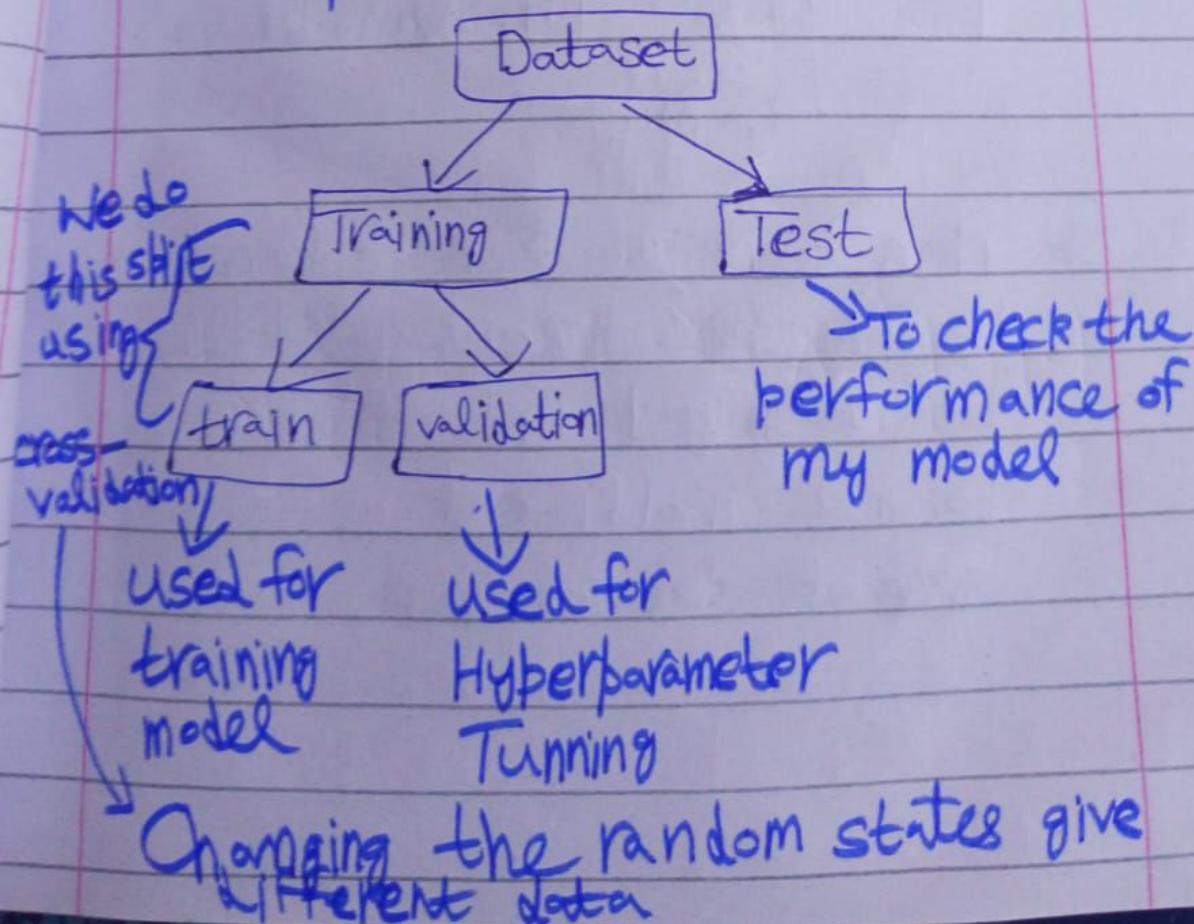 Dataset
Training
Test
We do
this split
using
cross-
validation
train
validation
To check the
performance of
my model
used for
training
model
used for
Hyperparameter
Tunning
Changing the random states give
different data